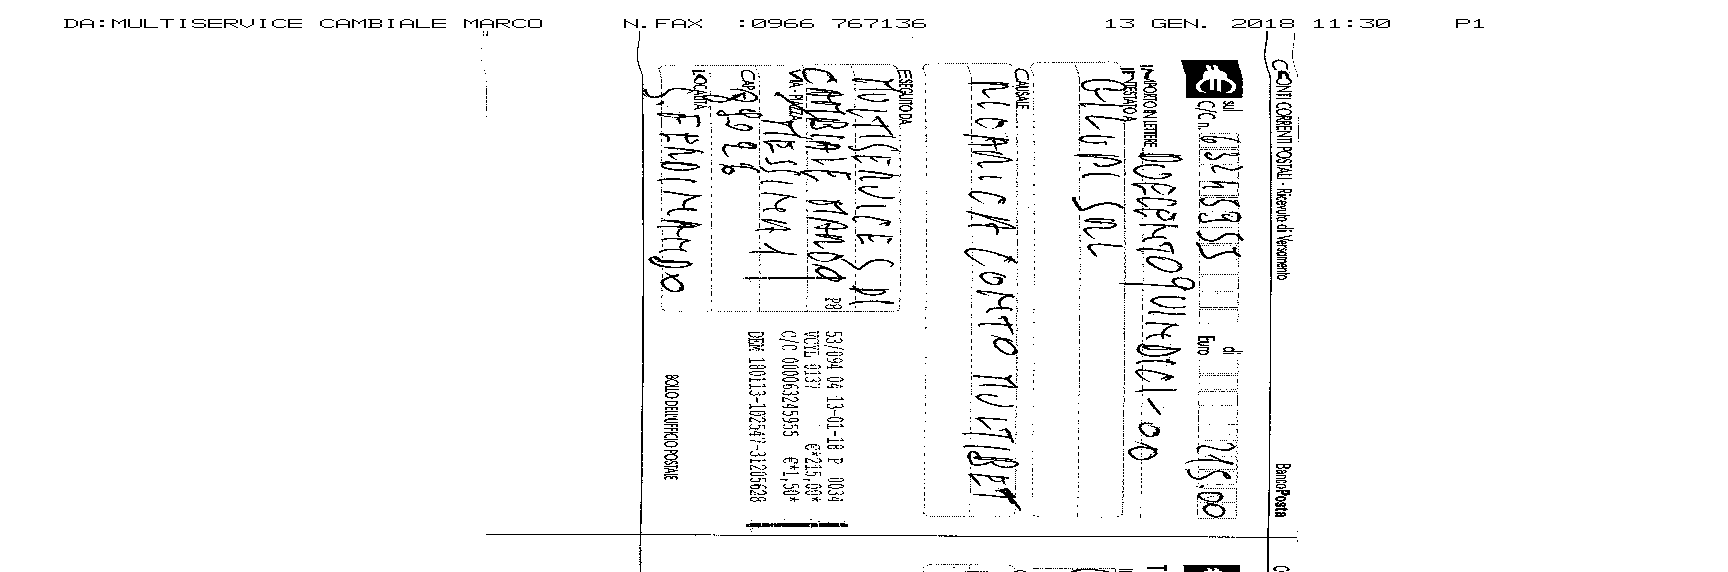 DA:MULTISERVICE CAMBIALE MARCO N.FAX :0966 767136 13 GEN. 2018 11:30 P1
CONTI CORRENTI POSTALI - Ricevuta di Versamento BancoPosta
€ sul C/C n. di Euro 215,00
IMPORTO IN LETTERE DUECENTOQUINDICI-00
INTESTATO A
SRL
CAUSALE
RICARICA CONTO MULTIBET
ESEGUITO DA
MULTISERVICES DI
CAMBIALE MARCO
VIA - PIAZZA
MESSINA 1
CAP
LOCALITÀ
S. FERDINANDO
53/094 04 13-01-18 P 0034
VCYL 0137 €*215,00*
C/C 000063245955 €*1,50*
DEM 180113-102547-31205628
BOLLO DELL'UFFICIO POSTALE